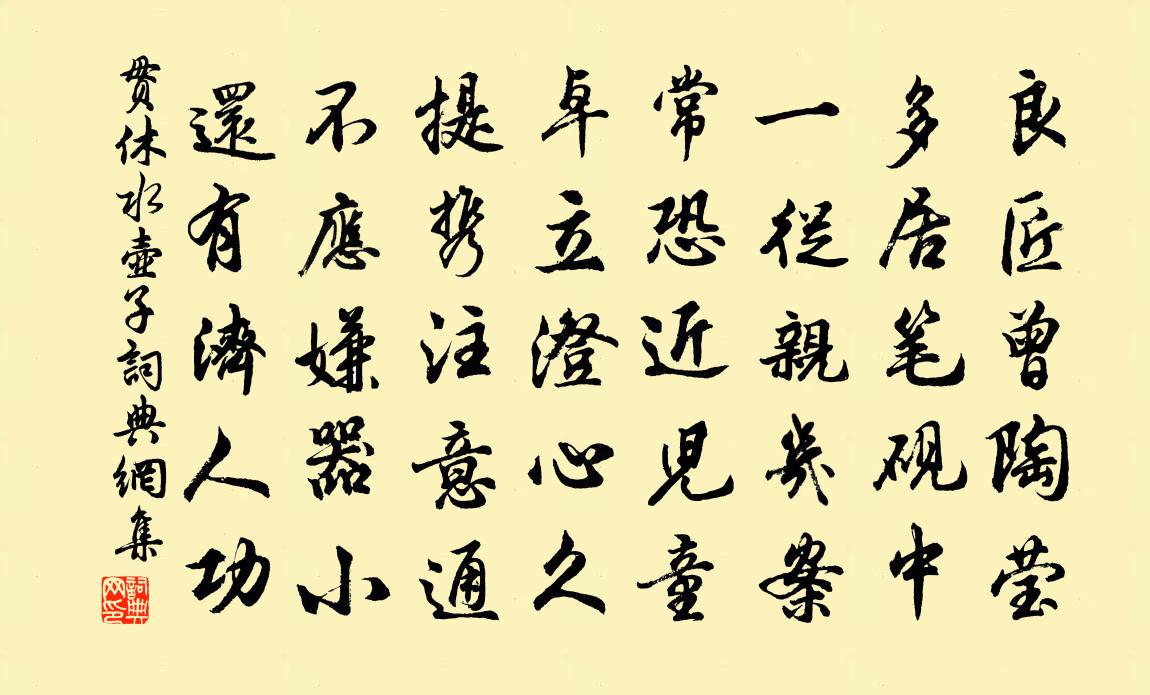 良匠曾陶莹
多居笔砚中
一從親幾案
常恐近兒童
卓立澄心久
提携注意通
不應嫌器小
還有濟人功
贯休水壺子詞典網集
詞典网印